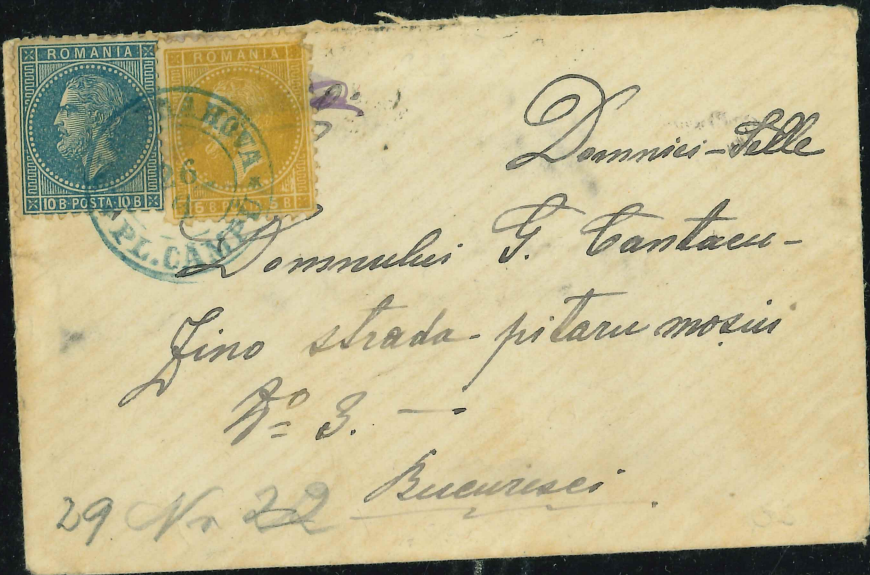 ROMANIA
10 B. POSTA 10 B
ROMANIA
5 B 5 B
PRAHOVA
26
* PL. CAMPU *
Domnici-Selle
Domnului G. Cantacu-
zino strada pitaru moșiu
No 3. —
Bucuresci.
29 Nr 22